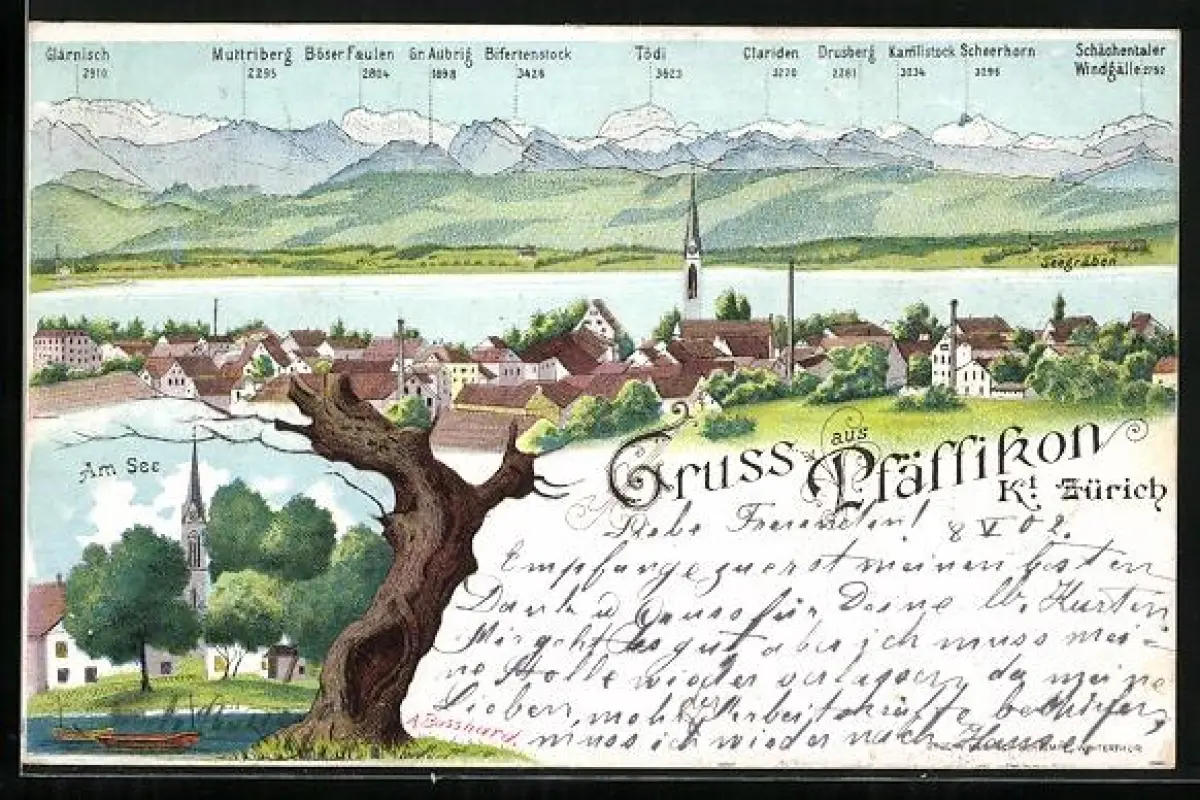 Glärnisch Muttriberg Böser Faulen Gr. Aubrig Bifertenstock Tödi Clariden Drusberg Kamlistock Scheerhorn Schächentaler
2910 2295 2804 1898 3426 3623 3270 2281 3234 3296 Windgälle 2752
Seegräben
Gruss aus Pfäffikon
Kt. Zürich
Am See
Liebe Freundin! 8 V 02.
Empfange zuerst meinen besten
Dank u Gruss für Deine lb. Karten
Mir geht es gut aber ich muss mei=
ne Stelle wieder verlassen, da meine
Lieben, mehr Arbeitskräfte bedürfen,
muss ich wieder nach Hause
A. Bosshard
WINTERTHUR